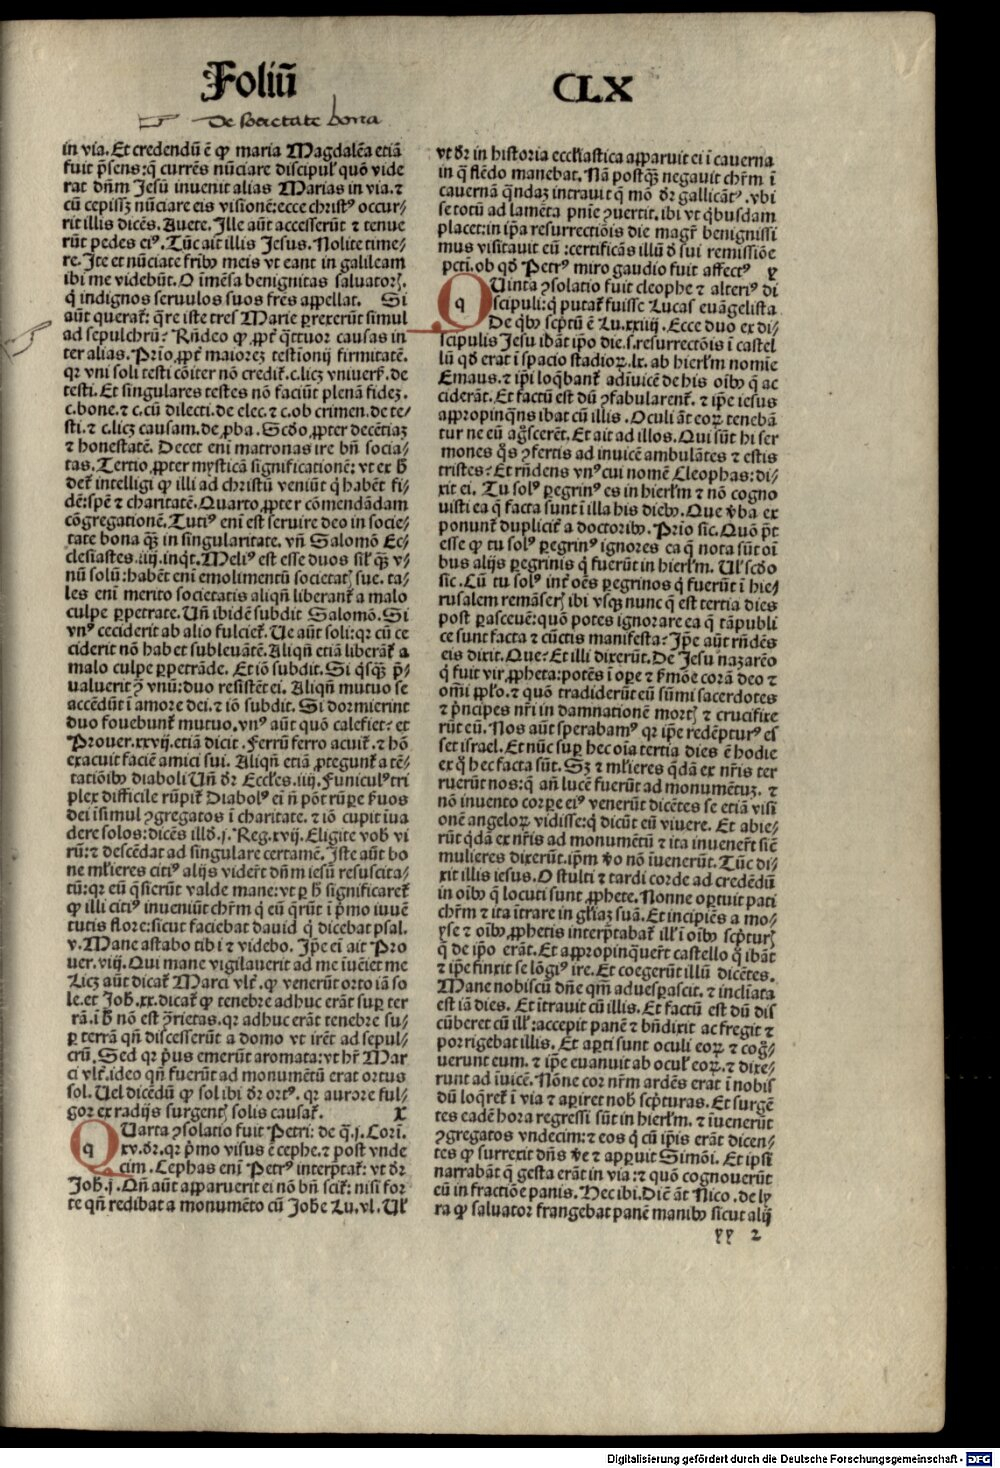 Foliū CLX
De societate bona
in via. Et credendū ē ꝙ maria Magdalēa etiā
fuit p̄sens: q̄ currēs nūciare discipul' quō vide
rat dn̄m Jesū invenit alias Marias in via. ⁊
cū cepissꝫ nūciare eis visionē: ecce christꝰ occur⸗
rit illis dicēs. Avete. Ille aūt accesserūt ⁊ tenue
rūt pedes eiꝰ. Tūc ait illis Jesus. Nolite time⸗
re. Ite et nūciate fribꝰ meis vt eant in galileam
ibi me videbūt. O īmēsa benignitas saluatorꝭ.
q̄ indignos seruulos suos frēs appellat. Si
aūt querat̄: q̄re iste tres Marie ꝑrexerūt simul
ad sepulchrū? Rn̄deo ꝙ ꝓpt̄ q̄ttuor causas in
ter alias. Prīo ꝓpt̄ maiorez testionij firmitatē.
qꝛ vni soli testi cōiter nō credit̄. c. licꝫ vniuerſ. de
testi. Et singulares testes nō faciūt plenā fidez.
c. bone. ⁊ c. cū dilecti. de elec. ⁊ c. ob crimen. de te⸗
sti. ⁊ c. licꝫ causam. de ꝓba. Scd̄o ꝓpter decētiaꝫ
⁊ honestatē. Decet eni matronas ire bn̄ socia⸗
tas. Tertio ꝓpter mysticā significationē: vt ex h̄
det̄ intelligi ꝙ illi ad christū veniūt q̄ habēt fi⸗
dē: spē ⁊ charitatē. Quarto ꝓpter cōmendādam
cōgregationē. Tutiꝰ eni est servire deo in socie⸗
tate bona q̄ꝫ in singularitate. vn̄ Salomō Ec⸗
clesiastes. iiij. inqt. Meliꝰ est esse duos sil̄ q̄ꝫ v⸗
nū solū: habēt eni emolimentū societatꝭ sue. ta⸗
les eni merito societatis aliqn̄ liberant̄ a malo
culpe ꝑpetrate. Un̄ ibidē subdit Salomō. Si
vnꝰ ceciderit ab alio fulciet̄. Ue aūt soli: qꝛ cū ce
ciderit nō habet sublevātē. Aliqn̄ etiā liberāt̄ a
malo culpe ꝑpetrāde. Et iō subdit. Si q̄sq̄ꝫ p̄⸗
valuerit ꝯ vnū: duo resistēt ei. Aliqn̄ mutuo se
accēdūt ī amore dei. ⁊ iō subdit. Si dormierint
duo fouebunt̄ mutuo. vnꝰ aūt quō calefiet? et
Prouer. xxvij. etiā dicit. Ferrū ferro acuit̄. ⁊ hō
exacuit faciē amici sui. Aliqn̄ etiā ꝓtegunt̄ a tē⸗
tatiōibꝰ diaboli Un̄ dr̄ Eccl̄es. iiij. Funiculꝰ tri
plex difficile rūpit̄ Diabolꝰ ei n̄ pōt rūpe s̄uos
dei īsimul ꝯgregatos ī charitate. ⁊ iō cupit īua
dere solos: dicēs illd̄. j. Reg. xvij. Eligite vob̄ vi
rū: ⁊ descēdat ad singulare certamē. Iste aūt bo
ne ml̄ieres citiꝰ alijs viderūt dn̄m iesū resuscita⸗
tū: qꝛ eū q̄sierūt valde mane: vt ꝑ h̄ significaret̄
ꝙ illi citiꝰ inveniūt chr̄m q̄ eū q̄rūt ī p̄mo iuuē
tutis flore: sicut faciebat david q̄ dicebat psal.
v. Mane astabo tibi ⁊ videbo. Ip̄e ei ait Pro
uer. viij. Qui mane vigilauerit ad me īveniet me
Licꝫ aūt dicat̄ Marci vlt̄. ꝙ venerūt orto iā so
le. et Joh̄. xx. dicat̄ ꝙ tenebre adhuc erāt suꝑ ter
rā. ī h̄ nō est ꝯrietas. qꝛ adhuc erāt tenebre su⸗
ꝑ terrā qn̄ discesserūt a domo vt irēt ad sepul⸗
crū. Sed qꝛ p̄us emerūt aromata: vt hr̄ Mar
ci vlt̄. ideo qn̄ fuerūt ad monumētū erat ortus
sol. Uel dicēdū ꝙ sol ibi dr̄ ortꝰ. qꝛ aurore ful⸗
gor ex radijs surgentꝭ solis causat̄. X
Quarta ꝯsolatio fuit Petri: de q̄. j. Corī.
xv. dr̄. qꝛ p̄mo visus ē cephe. ⁊ post vnde
cim. Cephas eni Petrꝰ interp̄tat̄: vt dr̄
Joh̄. j. Qn̄ aūt apparuerit ei nō bn̄ scit̄: nisi for
te qn̄ redibat a monumēto cū Joh̄e Lu. vl. Ul̄
vt dr̄ in historia eccl̄iastica apparuit ei ī caverna
in q̄ flēdo manebat. Nā postq̄ꝫ negavit chr̄m ī
cavernā q̄ndaꝫ intravit q̄ mō dr̄ gallicātꝰ. vbi
se totū ad lamēta pn̄ie ꝯvertit. ibi vt q̄busdam
placet: in ip̄a resurrectiōis die magr̄ benignissi
mus visitavit eū: certificās illū d̄ sui remissiōe
pcti. ob qd̄ Petrꝰ miro gaudio fuit affectꝰ y
Quinta ꝯsolatio fuit cleophe ⁊ alteriꝰ di
scipuli: q̄ putat̄ fuisse Lucas evāgelista.
De qbꝰ scp̄tū ē Lu. xxiiij. Ecce duo ex di⸗
scipulis Jesu ibāt ip̄o die. s. resurrectōis ī castel
lū qd̄ erat ī spacio stadioꝝ. lx. ab hierl̄m nomīe
Emaus. ⁊ ip̄i loq̄bant̄ adīvicē de his oībꝰ q̄ ac
ciderāt. Et factū est dū ꝯfabularent̄. ⁊ ip̄e iesus
appropinq̄ns ibat cū illis. Oculi āt eoꝝ tenebā
tur ne eū ag̊scerēt. Et ait ad illos. Qui sūt hi ser
mones q̊s ꝯfertis ad invicē ambulātes ⁊ estis
tristes? Et rn̄dens vnꝰ cui nomē Cleophas: di⸗
xit ei. Tu solꝰ ꝑegrinꝰ es in hierl̄m ⁊ nō cogno
visti ea q̄ facta sunt ī illa his diebꝰ. Que v̄ba ex
ponunt̄ duplicit̄ a doctoribꝰ. Prīo sic. Quō pōt
esse ꝙ tu solꝰ ꝑegrinꝰ ignores ea q̄ nota sūt oī
bus alijs ꝑegrinis q̄ fuerūt in hierl̄m. Ul̄ scd̄o
sic. Cū tu solꝰ int̄ oēs ꝑegrinos q̄ fuerūt ī hie⸗
rusalem remāserꝭ ibi vsqꝫ nunc q̄ est tertia dies
post parasceuē: quō potes ignorare ea q̄ tā publi
ce sunt facta ⁊ cūctis manifesta? Ip̄e aūt rn̄dēs
eis dixit. Que? Et illi dixerūt. De Jesu nazarēo
q̄ fuit vir ꝓpheta: potēs ī oꝑe ⁊ s̄mōe corā deo ⁊
om̄i pplo. ⁊ quō tradiderūt eū sūmi sacerdotes
⁊ p̄ncipes nr̄i in damnationē mortꝭ ⁊ crucifixe
rūt eū. Nos aūt sperabamꝰ qꝛ ip̄e redēpturꝰ es
set israel. Et nūc suꝑ hec oīa tertia dies ē hodie
ex q̄ hec facta sūt. Sꝫ ⁊ ml̄ieres q̄dā ex nr̄is ter
ruerūt nos: q̄ an̄ lucē fuerūt ad monumētuꝫ. ⁊
nō invento corꝑe eiꝰ venerūt dicētes se etiā visi
onē angeloꝝ vidisse: q̄ dicūt eū vivere. Et abie⸗
rūt q̄dā ex nr̄is ad monumētū ⁊ ita invenert̄ sic̄
mulieres dixerūt. ip̄m v̄o nō īvenerūt. Tūc di⸗
xit illis iesus. O stulti ⁊ tardi corde ad credēdū
in oībꝰ q̄ locuti sunt ꝓphete. Nonne oꝑtuit pati
chr̄m ⁊ ita ītrare in gl̄iaꝫ suā. Et incipiēs a mo⸗
yse ⁊ oībꝰ ꝓphetis interp̄tabat̄ ill̄ ī oībꝰ scp̄turꝭ
q̄ de ip̄o erāt. Et appropinquert̄ castello q̊ ibāt
⁊ ip̄e finxit se lōgiꝰ ire. Et coegerūt illū dicētes.
Mane nobiscū dn̄e qm̄ aduesperascit. ⁊ inclīata
est iā dies. Et ītravit cū illis. Et factū est dū dis
cūberet cū ill̄: accepit panē ⁊ bn̄dixit ac fregit ⁊
porrigebat illis. Et aꝑti sunt oculi eoꝝ ⁊ cog̊⸗
verunt eum. ⁊ ip̄e evanuit ab ocul̄ eoꝝ. ⁊ dixe⸗
runt ad īvicē. Nōne cor nr̄m ardēs erat ī nobis
dū loq̄ret̄ ī via ⁊ aꝑiret nob̄ scp̄turas. Et surgē
tes eadē hora regressi sūt in hierl̄m. ⁊ īvenerūt
ꝯgregatos vndecim: ⁊ eos q̄ cū ip̄is erāt dicen⸗
tes ꝙ surrexit dn̄s v̄e ⁊ apꝑuit Simōi. Et ipsi
narrabāt q̄ gesta erāt in via: ⁊ quō cognouerūt
eū in fractiōe panis. Hec ibi. Diē āt Nico. de ly
ra ꝙ salvator frangebat panē manibꝰ sicut alij
yy 2
Digitalisierung gefördert durch die Deutsche Forschungsgemeinschaft - DFG